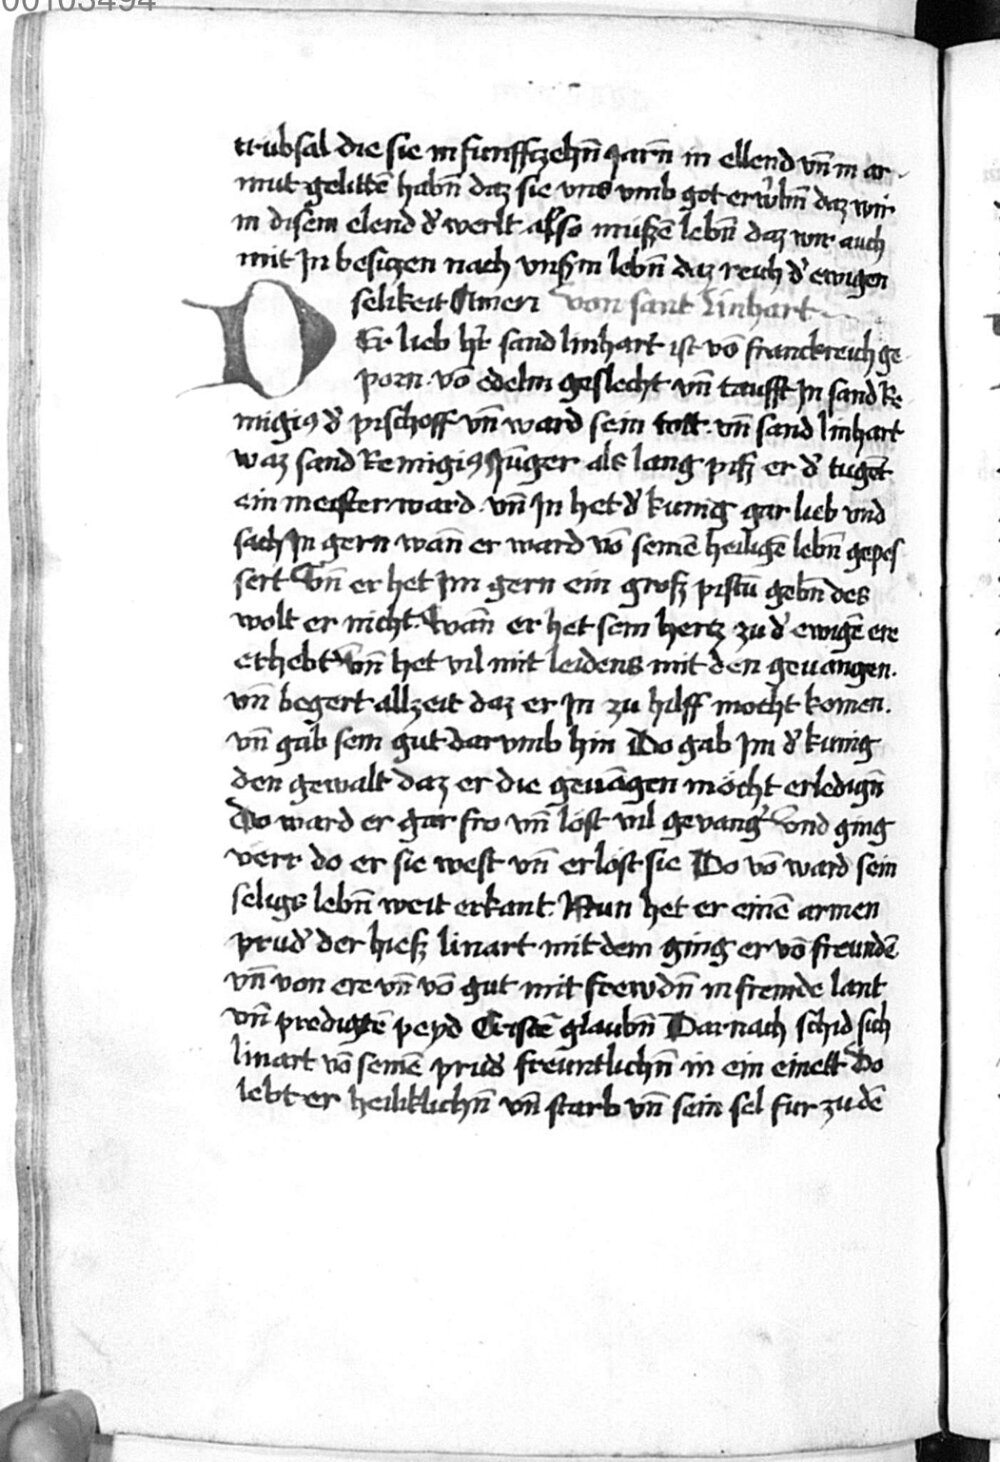 00103494
trubsal die sie in funffzehn̄ Jarn̄ in ellend vn̄ in ar
mut gelitē habn̄ daz sie vns vmb got erwˀbn̄ daz wir
in disem elend dˀ werlt also mußē lebn̄ daz wir auch
mit Jn besiczen nach vnsˀm lebn̄ daz reich dˀ ewigen
selikeit Amen von sant Linhart
DEr lieb hˀr sand linhart ist vō franckreich ge
porn vō edelm geslecht vn̄ taufft Jn sand Re
migiꝰ dˀ pischoff vn̄ ward sein tott vn̄ sand linhart
waz sand Remigiꝰ Jūnger als lang piß er dˀ tugēt
ein meister ward vn̄ Jn het dˀ kunig gar lieb vnd
sach Jn gern wan̄ er ward vō seinē heiligē lebn̄ gepes
sert Vn̄ er het Jm gern ein groß pistū gebn̄ des
wolt er nicht Wan̄ er het sein hertz zu dˀ ewigē ere
erhebt Vn̄ het vil mit leidens mit den geuangen.
vn̄ begert allzeit daz er Jn zu hilff mocht komen.
vn̄ gab sein gut dar vmb hin Do gab Jm dˀ kunig
den gewalt daz er die geuāgen möcht erledign̄
Do ward er gar fro vn̄ löst vil gevangˀ vnd ging
verr do er sie west vn̄ erlöst sie Do vō ward sein
seligs lebn̄ weit erkant. Nun het er einē armen
prudˀ der hieß linart mit dem ging er vō freundē
vn̄ von ere vn̄ vō gut mit frewdn̄ in fremde lant
vn̄ predigtē peyd Cristē glaubn̄ Darnach schid sich
linart vō seinē prudˀ freuntlichn̄ in ein einött Do
lebt er heiliklichn̄ vn̄ starb vn̄ sein sel fur zu dē